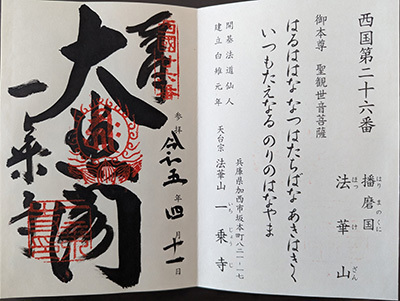 西国第二十六番
播磨国
はりまのくに
法華山
ほっけざん
御本尊 聖観世音菩薩
はるははな なつはたちばな あきはきく
いつもたえなる のりのはなやま
開基法道仙人
建立白雉元年
兵庫県加西市坂本町八二一ー一七
天台宗 法華山 一乗寺
いちじょうじ
西国二十六番
奉
参拝 令和五年四月十一日
大悲閣
一乗寺